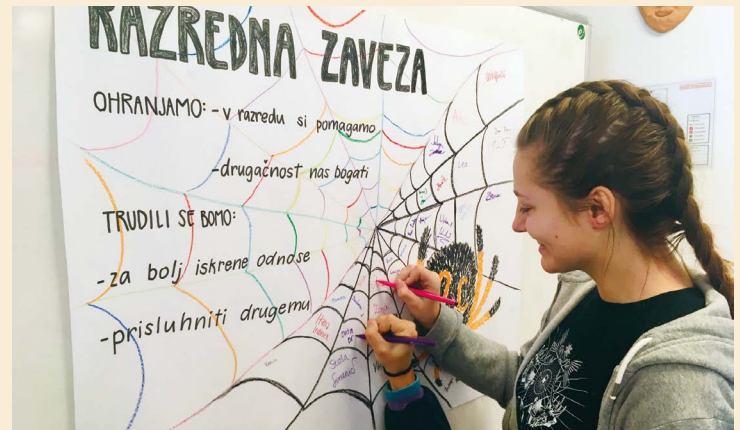 RAZREDNA ZAVEZA
OHRANJAMO: - v razredu si pomagamo
- drugačnost nas bogati
TRUDILI SE BOMO:
- za bolj iskrene odnose
- prisluhniti drugemu